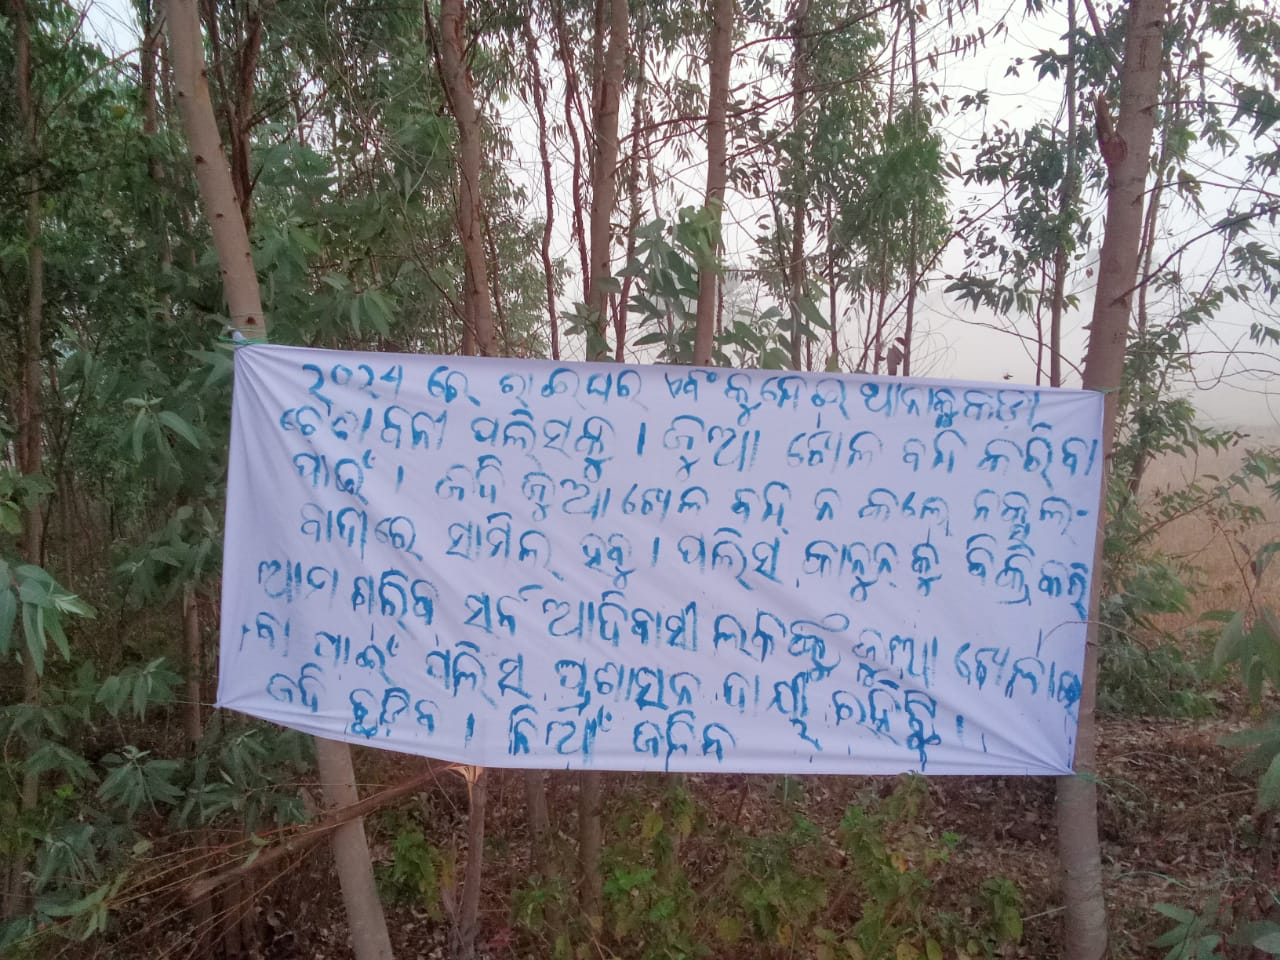 ୨୦୨୪ ରେ ରାଇଘର ଏବଂ କୁନ୍ଦେଇ ଥାନାକୁ କଡ଼ା
ଚେତାବନୀ ପଲିସକୁ । ଜୁଆ ଖେଳ ବନ୍ଦ କରିବା
ପାଇଁ । ଜଦି ଜୁଆ ଖେଳ ବନ୍ଦ ନ କଲେ ନକ୍ସଲ-
ବାଦୀରେ ସାମିଲ୍ ହବୁ । ପଲିସ୍ କାନୁନ୍ କୁ ବିକ୍ରି କରି
ଆମ ଗରିବ ସର୍ନ ଆଦିବାସୀ ଲକଙ୍କୁ ଜୁଆ ଖେଳାଇ
ବା ପାଇଁ ପଲିସ୍ ପ୍ରଶାସନ ଦାୟୀ ରହିଛି ।
ଜଦି ନିଆଁ ଜଳିବ